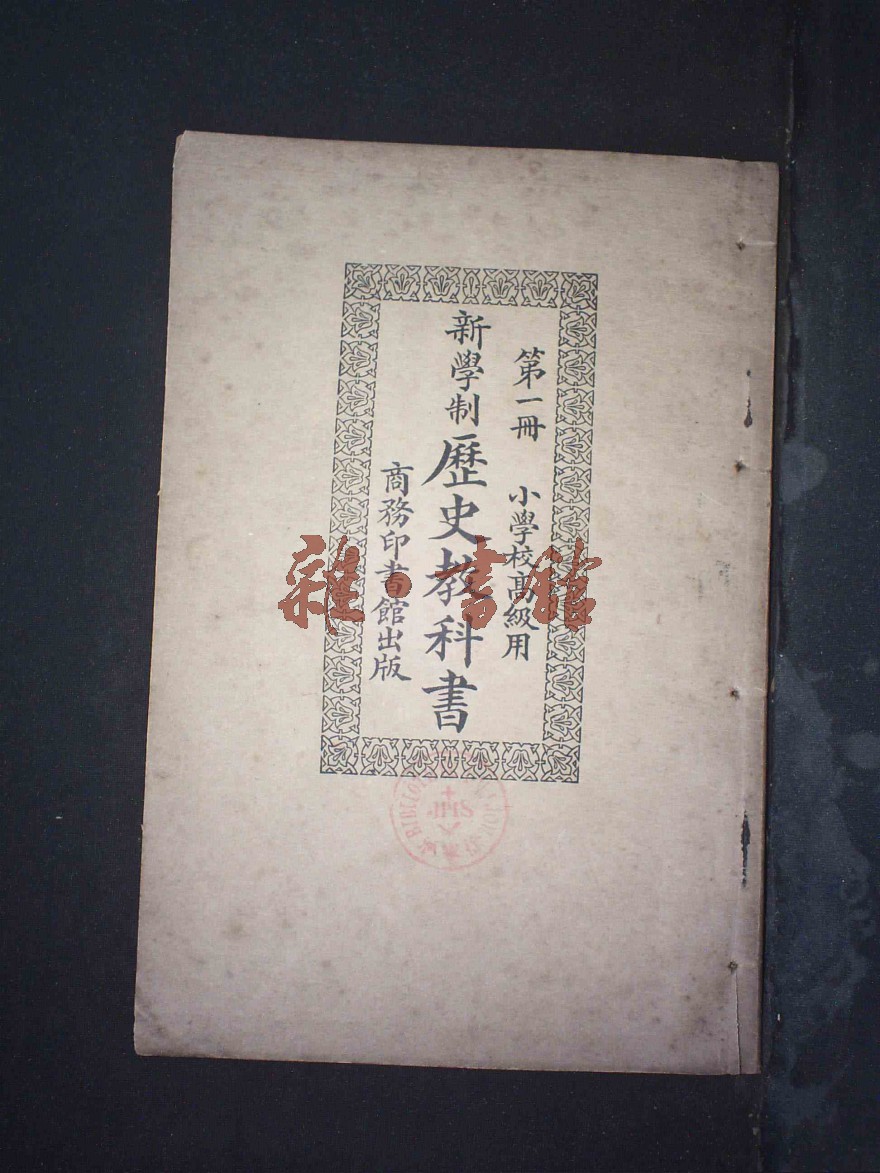 第一冊　小學校高級用
新學制歷史教科書
商務印書館出版
雜·書館
JHS